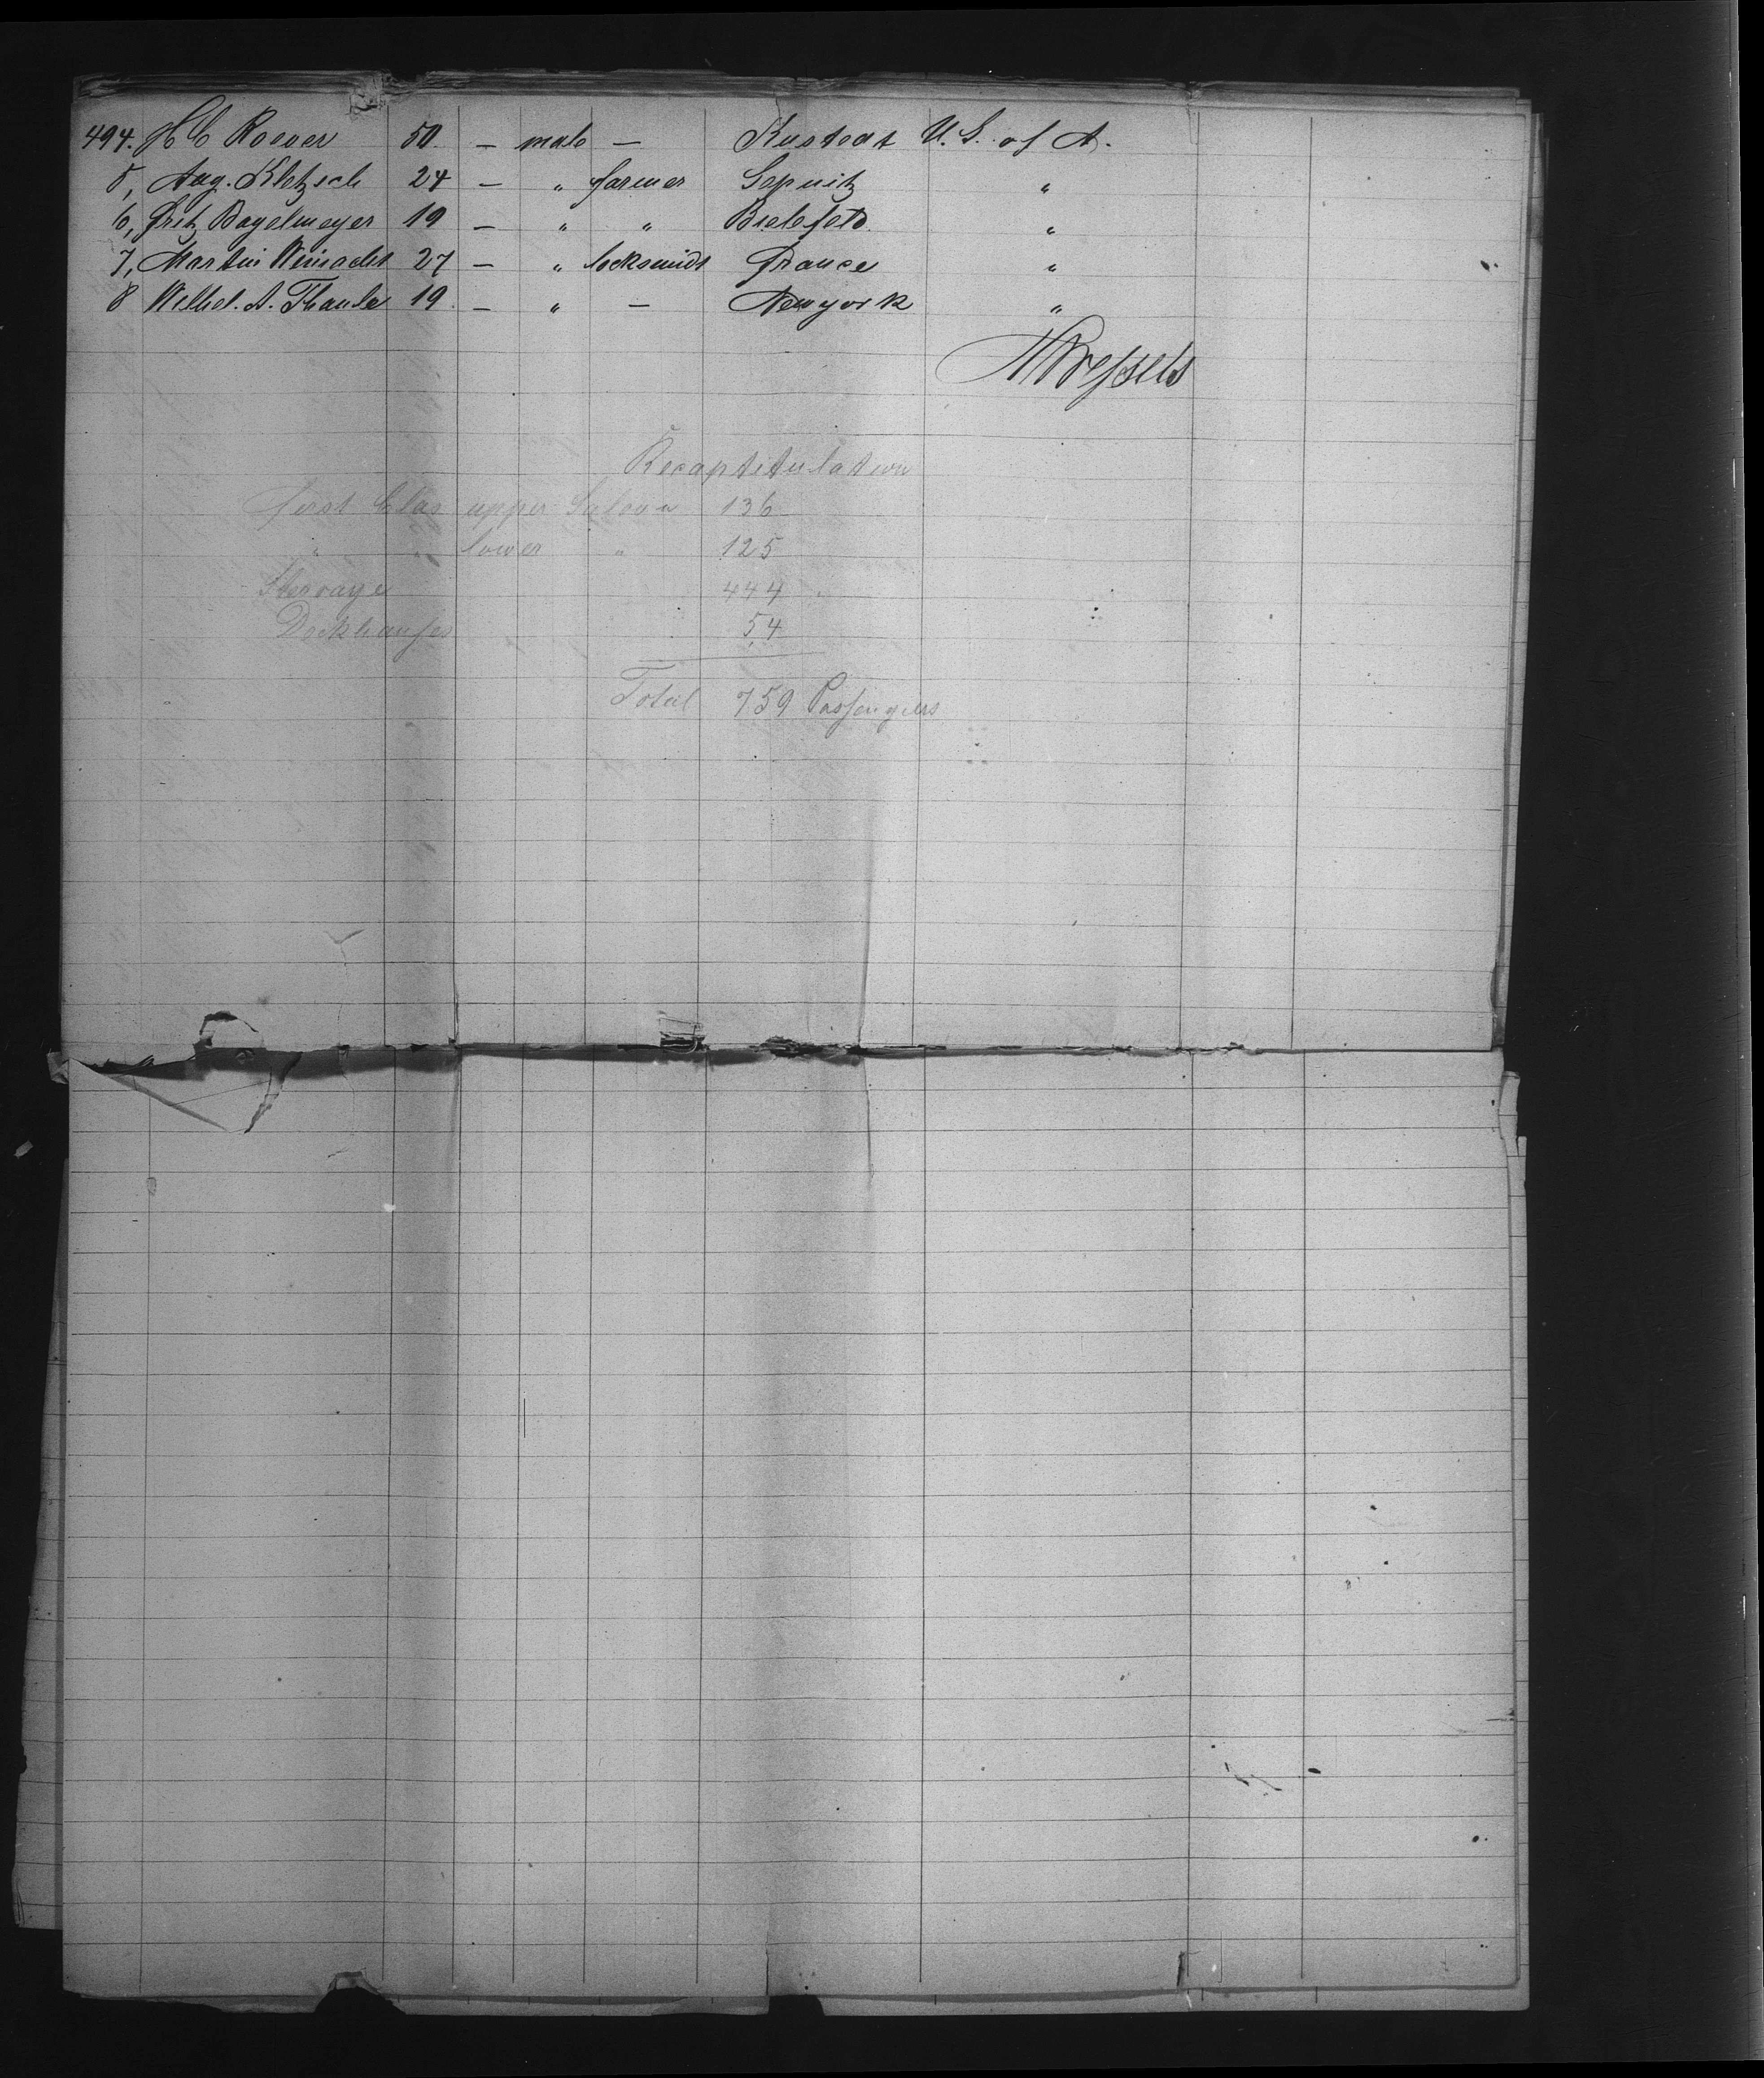 494. H C Roever 50. – male – Kustedt U. S. of A.
5, Aug. Kletzsch 24 – " farmer Sepnitz "
6, Fritz Bagelmeyer 19 – " " Bielefeld. "
7, Martin 27 – " locksmidt France "
8 Wilhel. A. Thaule 19. – " – Newyork "
Recaptitulation
first Clas upper Saloon 136
" " lower " 125
Steerage 444
Deckhauses 54
Total 759 Passengers